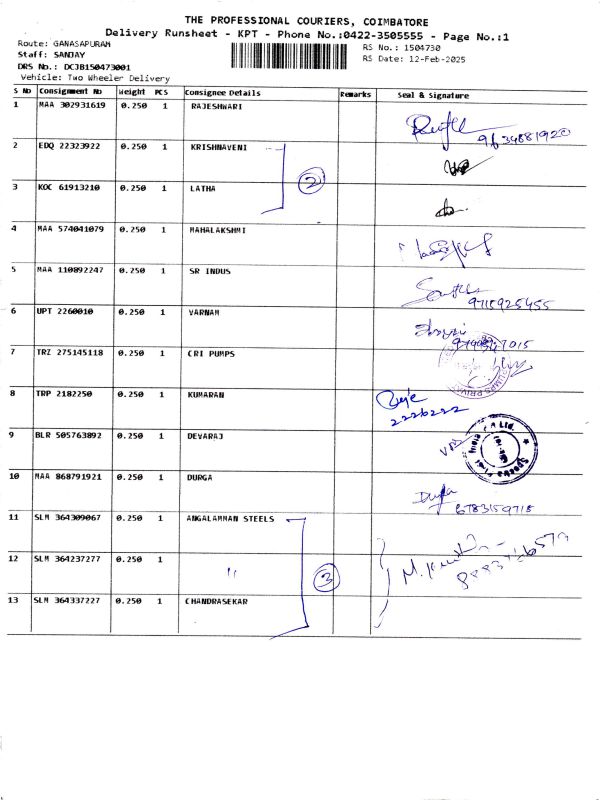 THE PROFESSIONAL COURIERS, COIMBATORE
Delivery Runsheet - KPT - Phone No.:0422-3505555 - Page No.:1
Route: GANASAPURAM
RS No.: 1504730
Staff: SANJAY
RS Date: 12-Feb-2025
DRS No.: DCJB150473001
Vehicle: Two Wheeler Delivery
S No Consignment No Weight PCS Consignee Details Remarks Seal & Signature
1 MAA 302931619 0.250 1 RAJESHWARI
2 EDQ 22323922 0.250 1 KRISHNAVENI
2
3 KOC 61913210 0.250 1 LATHA
4 MAA 574041079 0.250 1 MAHALAKSHMI
5 MAA 110892247 0.250 1 SR INDUS
9715925455
6 UPT 2260010 0.250 1 VARNAM
7 TRZ 275145118 0.250 1 CRI PUMPS
8 TRP 2182250 0.250 1 KUMARAN
2226222
9 BLR 505763892 0.250 1 DEVARAJ
10 MAA 868791921 0.250 1 DURGA
Durga
6783159715
11 SLM 364309067 0.250 1 ANGALAMMAN STEELS
12 SLM 364237277 0.250 1 "
3
13 SLM 364337227 0.250 1 CHANDRASEKAR